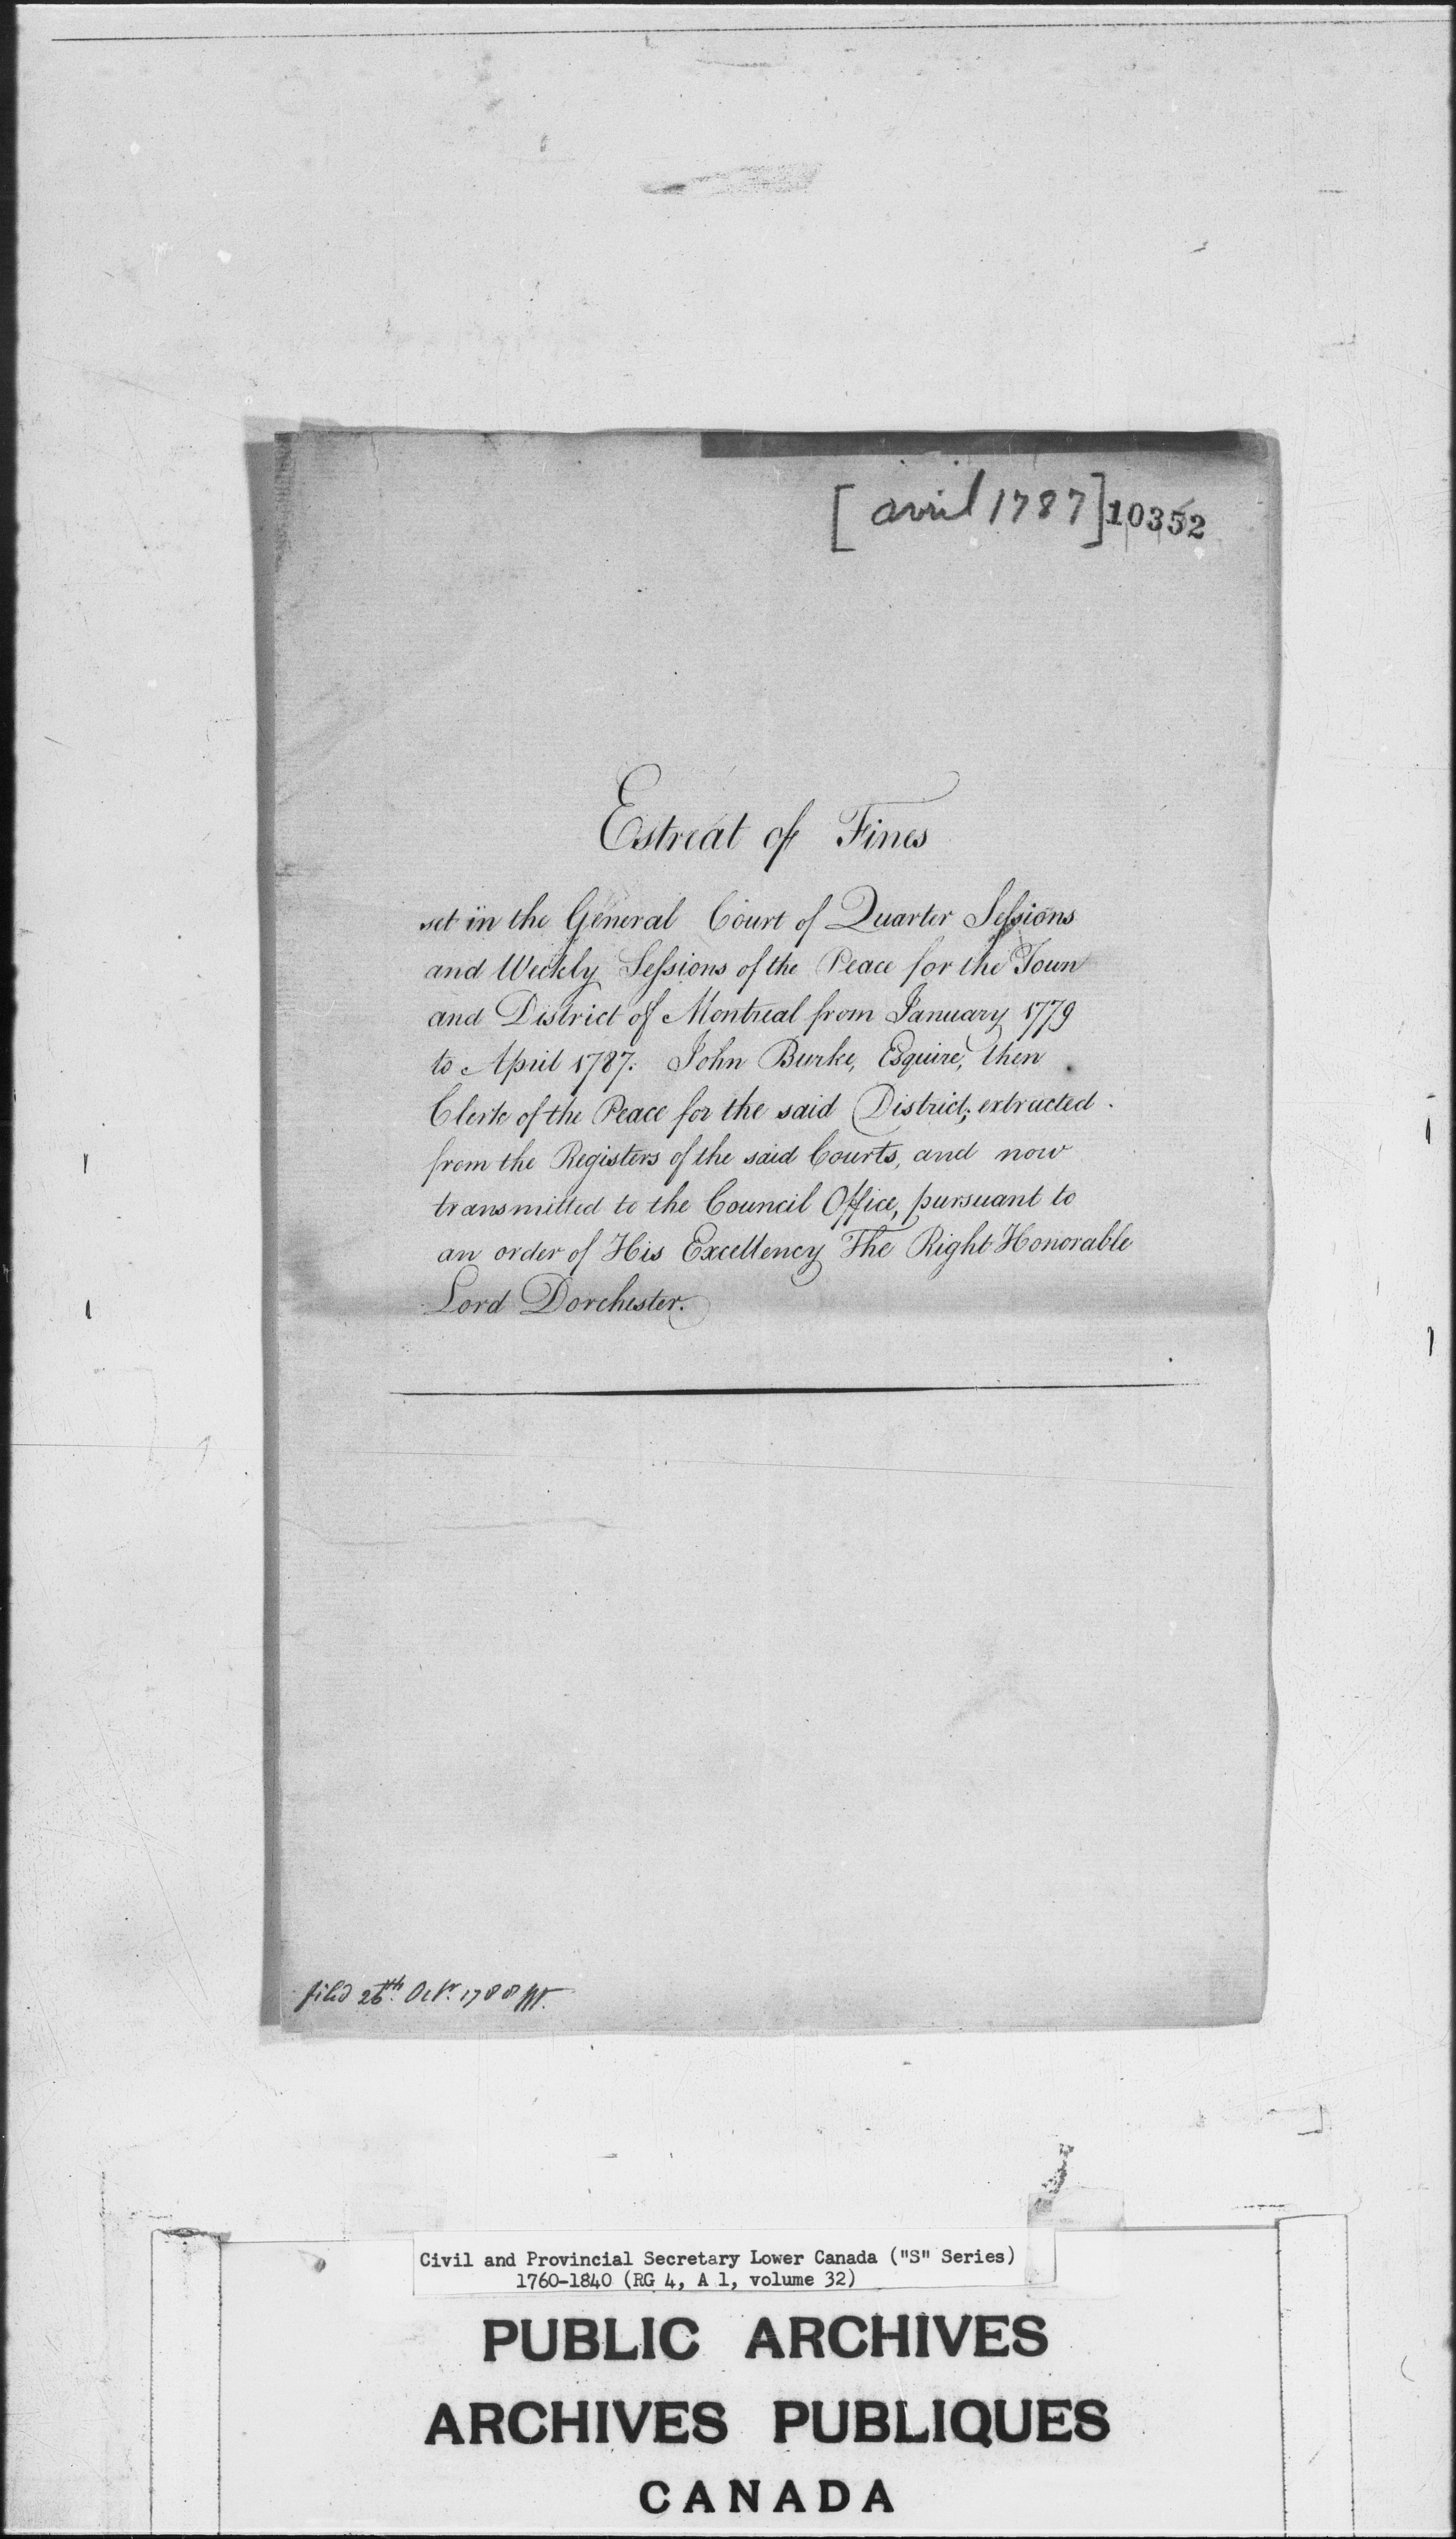 [avril 1787] 10352
Estreat of Fines
set in the General Court of Quarter Sessions
and Weekly Sessions of the Peace for the Town
and District of Montreal from January 1779
to April 1787. John Burke, Esquire, then
Clerk of the Peace for the said District; extracted
from the Registers of the said Courts, and now
transmitted to the Council Office, pursuant to
an order of His Excellency The Right Honorable
Lord Dorchester.
filed 26th Octr. 1788
Civil and Provincial Secretary Lower Canada ("S" Series)
1760-1840 (RG 4, A 1, volume 32)
PUBLIC ARCHIVES
ARCHIVES PUBLIQUES
CANADA